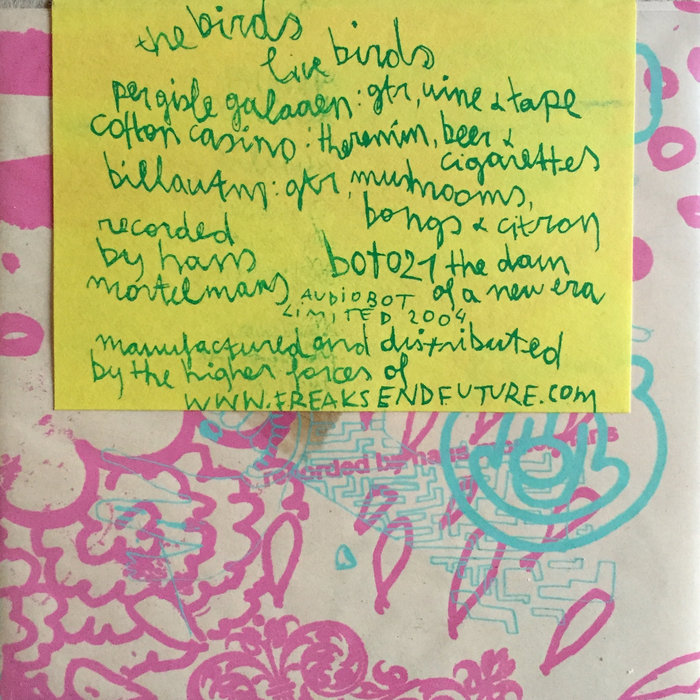 the birds
live birds
per gisle galaaen: gtr, wine & tape
cotton casino: theremin, beer &
cigarettes
billautmn: gtr, mushrooms,
bongs & citron
recorded
by hans
mortelmans
bot021 the dawn
of a new era
AUDIOBOT
LIMITED 2004
manufactured and distributed
by the higher forces of
WWW.FREAKSENDFUTURE.COM
recorded by hans mortelmans